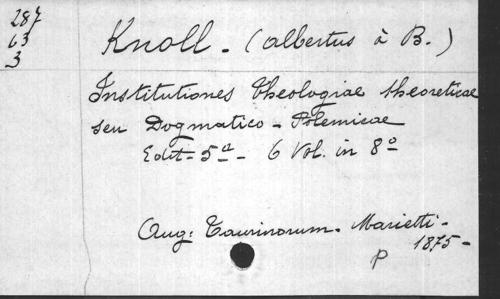 287
63
3
Knoll - (Albertus à B.)
Institutiones Theologiae theoreticae
seu Dogmatico - Polemicae
Edit = 5ª - 6 Vol. in 8º
Aug: Taurinorum. Marietti -
1875 -
P